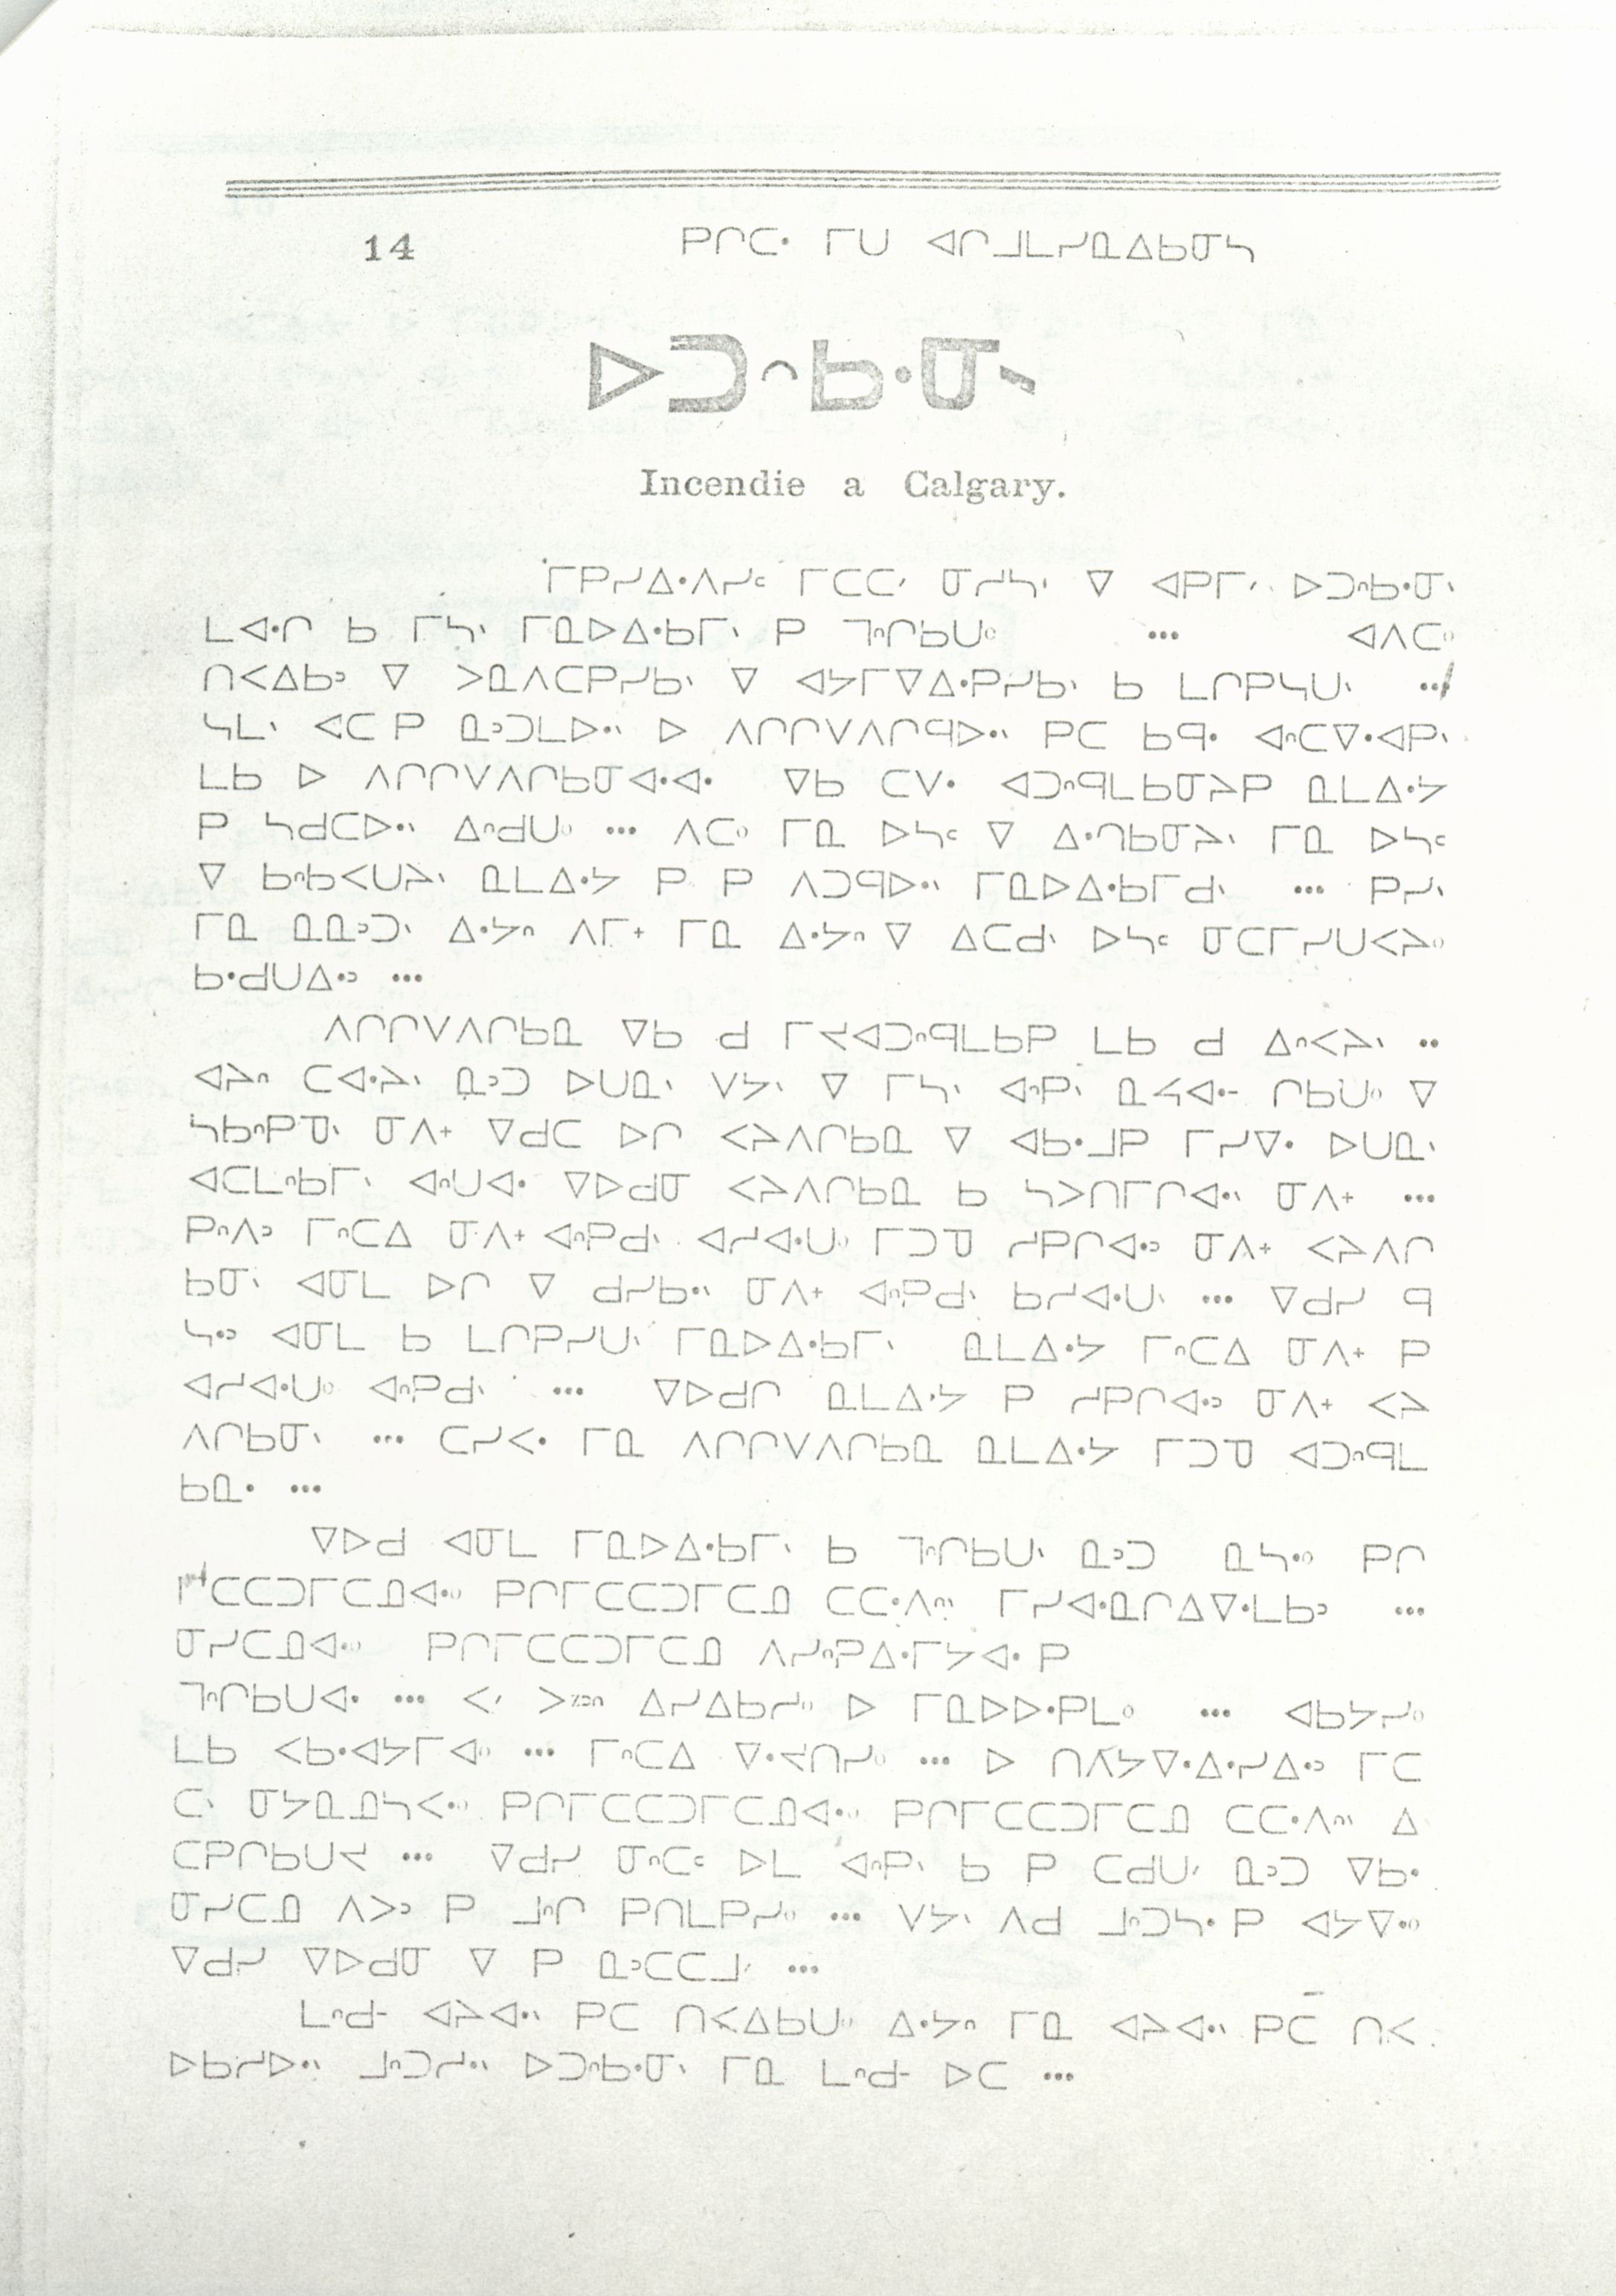 14 ᑭᒋᑕᐧ ᒥᑌ ᐊᒋᒧᒪᓯᓇᐃᑲᓂᓴ
ᐅᑐᐢᑲᐧᓂᐠ
Incendie a Calgary.
ᒥᑭᓯᐃᐧᐱᓯᒼ ᒥᑕᑕᐟ ᓂᓯᓴᐠ ᐁ ᐊᑭᒥᐟ ᐅᑐᐢᑲᐧᓂᐠ
ᒪᐊᐧᒋ ᑲ ᒥᓴᐠ ᒥᓇᐅᐃᐧᑲᒥᐠ ᑭ ᒣᐢᒋᑲᑌᐤ ... ᐊᐱᑕᐤ
ᑎᐸᐃᑲᐣ ᐁ ᐳᓇᐱᑕᑭᓯᑲᐠ ᐁ ᐊᔭᒥᐁᐃᐧᑭᓯᑲᐠ ᑲ ᒪᒋᑭᓴᑌᐠ ...
ᓴᒪᐠ ᐊᑕ ᑭ ᓇᐣᑐᒪᐅᐧᐠ ᐅ ᐱᒋᒋᐯᐱᒋᑫᐅᐧᐠ ᑭᑕ ᑲᑫᐧ ᐊᐢᑕᐁᐧᐊᑭᐠ
ᒪᑲ ᐅ ᐱᒋᒋᐯᐱᒋᑲᓂᐊᐧᐊᐧ ᐁᑲ ᑕᐯᐧ ᐊᑐᐢᑫᒪᑲᓂᔨᑭ ᓇᒪᐃᐧᔭ
ᑭ ᓴᑯᑕᐅᐧᐠ ᐃᐢᑯᑌᐤ ... ᐱᑕᐤ ᒥᓇ ᐅᓴᒼ ᐁ ᐃᐧᒋᑲᓂᔨᐠ ᒥᓇ ᐅᓴᒼ
ᐁ ᑲᐢᑲᐸᑌᔨᐠ ᓇᒪᐃᐧᔭ ᑭ ᑭ ᐱᑐᑫᐅᐧᐠ ᒥᓇᐅᐃᐧᑲᒥᑯᐠ ... ᑭᓯᐠ
ᒥᓇ ᓇᓇᐣᑐᐠ ᐃᐧᔭᐢ ᐱᒥᐩ ᒥᓇ ᐃᐧᔭᐢ ᐁ ᐃᑕᑯᐠ ᐅᓴᒼ ᓂᑕᒥᓯᑌᐸᔨᐤ
ᑲᐧᑯᑌᐃᐧᐣ ...
ᐱᒋᒋᐯᐱᒋᑲᓇ ᐁᑲ ᑯ ᒥᔪᐊᑐᐢᑫᒪᑲᑭ ᒪᑲ ᑯ ᐃᐢᐸᔨᐠ ..
ᐊᔨᐢ ᑕᐊᐧᔨᐠ ᓇᐣᑐ ᐅᑌᓇᐠ ᐯᔭᐠ ᐁ ᒥᓴᐠ ᐊᐢᑭᐠ ᓇᔪᐊᐧᐨ ᒋᑲᑌᐤ ᐁ
ᓴᑲᐢᑭᓀᐠ ᓂᐱᐩ ᐁᑯᑕ ᐅᒋ ᐸᔨᐱᒋᑲᓇ ᐁ ᐊᑲᐧᒧᑭ ᒥᓯᐁᐧ ᐅᑌᓇᐠ
ᐊᑕᒪᐢᑲᒥᐠ ᐊᐢᑌᐊᐧ ᐁᐅᑯᓂ ᐸᔨᐱᒋᑲᓇ ᑲ ᓴᐳᑎᒥᒋᐊᐧᐠ ᓂᐱᐩ ...
ᑭᐢᐱᐣ ᒥᐢᑕᐃ ᓂᐱᐩ ᐊᐢᑭᑯᐠ ᐊᓯᐊᐧᑌᐤ ᒥᑐᓀ ᓯᑭᒋᐊᐧᐣ ᓂᐱᐩ ᐸᔨᐱᒋ
ᑲᓂᐠ ᐊᓂᒪ ᐅᒋ ᐁ ᑯᓯᑲᐧᐠ ᓂᐱᐩ ᐊᐢᑭᑯᐠ ᑲᓯᐊᐧᑌᐠ ... ᐁᑯᓯ ᑫ
ᓴᐧᐣ ᐊᓂᒪ ᑲ ᒪᒋᑭᓯᑌᐠ ᒥᓇᐅᐃᐧᑲᒥᐠ ᓇᒪᐃᐧᔭ ᒥᐢᑕᐃ ᓂᐱᐩ ᑭ
ᐊᓯᐊᐧᑌᐤ ᐊᐢᑭᑯᐠ ... ᐁᐅᑯᒋ ᓇᒪᐃᐧᔭ ᑭ ᓯᑭᒋᐊᐧᐣ ᓂᐱᐩ ᐸᔨ
ᐱᒋᑲᓂᐠ ... ᑕᓯᐸᐧ ᒥᓇ ᐱᒋᒋᐯᐱᒋᑲᓇ ᓇᒪᐃᐧᔭ ᒥᑐᓀ ᐊᑐᐢᑫᒪ
ᑲᓇᐧ ...
ᐁᐅᑯ ᐊᓂᒪ ᒥᓇᐅᐃᐧᑲᒥᐠ ᑲ ᒣᐢᒋᑲᑌᐠ ᓇᐣᑐ ᓇᓴᐧᐤ ᑭᒋ
ᒥᑕᑕᑐᒥᑕᓄᐊᐧᐤ ᑭᒋᒥᑕᑕᑐᒥᑕᓄ ᑕᑕᐧᐱᐢᑲᐠ ᒥᓯᐊᐧᓇᒋᐃᐁᐧᒪᑲᐣ ...
ᓂᓯᑕᓄᐊᐧᐤ ᑭᒋᒥᑕᑕᑐᒥᑕᓄ ᐱᓯᐢᑭᐃᐧᒥᔭᐊᐧ ᑭ
ᒣᐢᒋᑲᑌᐊᐧ ... ᐸᐟ ᐳᕽᐣᐢ ᐃᓯᐃᑲᓱᐤ ᐅ ᒥᓇᐅᐅᐧᑭᒪᐤ ... ᐊᑲᔭᓯᐤ
ᒪᑲ ᐸᑲᐧᐊᔭᒥᐊᐤ ... ᒥᐢᑕᐃ ᐁᐧᔪᑎᓯᐤ ... ᐅ ᑎᐹᔭᐁᐧᐃᐧᓯᐃᐧᐣ ᒥᑕ
ᑕᐠ ᓂᔭᓇᓄᓴᐸᐧᐤ ᑭᒋᒥᑕᑕᑐᒥᑕᓄᐊᐧᐤ ᑭᒋᒥᑕᑕᑐᒥᑕᓄ ᑕᑕᐧᐱᐢᑲᐠ ᐃ
ᑕᑭᒋᑲᑌᔪ ... ᐁᑯᓯ ᓂᐢᑕᒼ ᐅᒪ ᐊᐢᑭᐠ ᑲ ᑭ ᑕᑯᑌᐟ ᓇᐣᑐ ᐁᑲᐧ
ᓂᓯᑕᓄ ᐱᐳᐣ ᑭ ᒧᐢᒋ ᑭᑎᒪᑭᓯᐤ ... ᐯᔭᐠ ᐱᑯ ᒧᐢᑐᓴᐧ ᑭ ᐊᔭᐁᐧᐤ
ᐁᑯᓯ ᐁᐅᑯᓂ ᐁ ᑭ ᓇᐣᑕᑕᒧᐟ ...
ᒪᐢᑯᐨ ᐊᔨᐊᐧᐠ ᑭᑕ ᑎᐸᐃᑲᑌᐤ ᐃᐧᔭᐢ ᒥᓇ ᐊᔨᐊᐧᐠ ᑭᑕ ᑎᐸ
ᐅᑲᓱᐅᐧᐠ ᒧᐢᑐᓱᐠ ᐅᑐᐢᑲᐧᓂᐠ ᒥᓇ ᒪᐢᑯᐨ ᐅᑕ ...